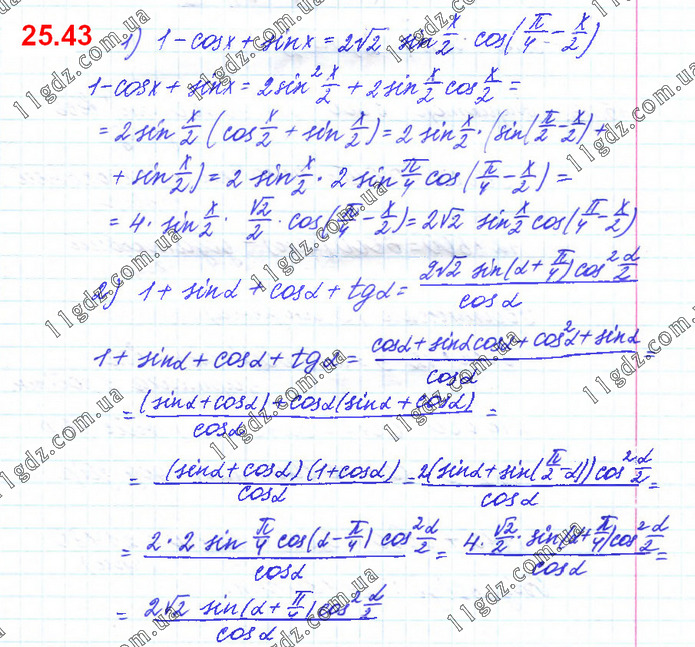 25.43 1) 1 - cosx + sinx = 2√2 sin x/2 · cos(π/4 - x/2)
1 - cosx + sinx = 2sin² x/2 + 2sin x/2 cos x/2 =
= 2sin x/2 (cos x/2 + sin x/2) = 2 sin x/2 · (sin(π/2 - x/2) +
+ sin x/2) = 2 sin x/2 · 2 sin π/4 cos(π/4 - x/2) =
= 4 · sin x/2 · √2/2 · cos(π/4 - x/2) = 2√2 sin x/2 cos(π/4 - x/2)
2) 1 + sinα + cosα + tgα = 2√2 sin(α + π/4) cos² α/2 / cosα
1 + sinα + cosα + tgα = cosα + sinα cosα + cos²α + sinα / cosα =
= (sinα + cosα) + cosα(sinα + cosα) / cosα =
= (sinα + cosα)(1 + cosα) / cosα = 2(sinα + sin(π/2 - α)) cos² α/2 / cosα =
= 2 · 2 sin π/4 cos(α - π/4) cos² α/2 / cosα = 4 · √2/2 · sin(α + π/4) cos² α/2 / cosα =
= 2√2 sin(α + π/4) cos² α/2 / cosα
11gdz.com.ua
11gdz.com.ua
11gdz.com.ua
11gdz.com.ua
11gdz.com.ua
11gdz.com.ua
11gdz.com.ua
11gdz.com.ua
11gdz.com.ua